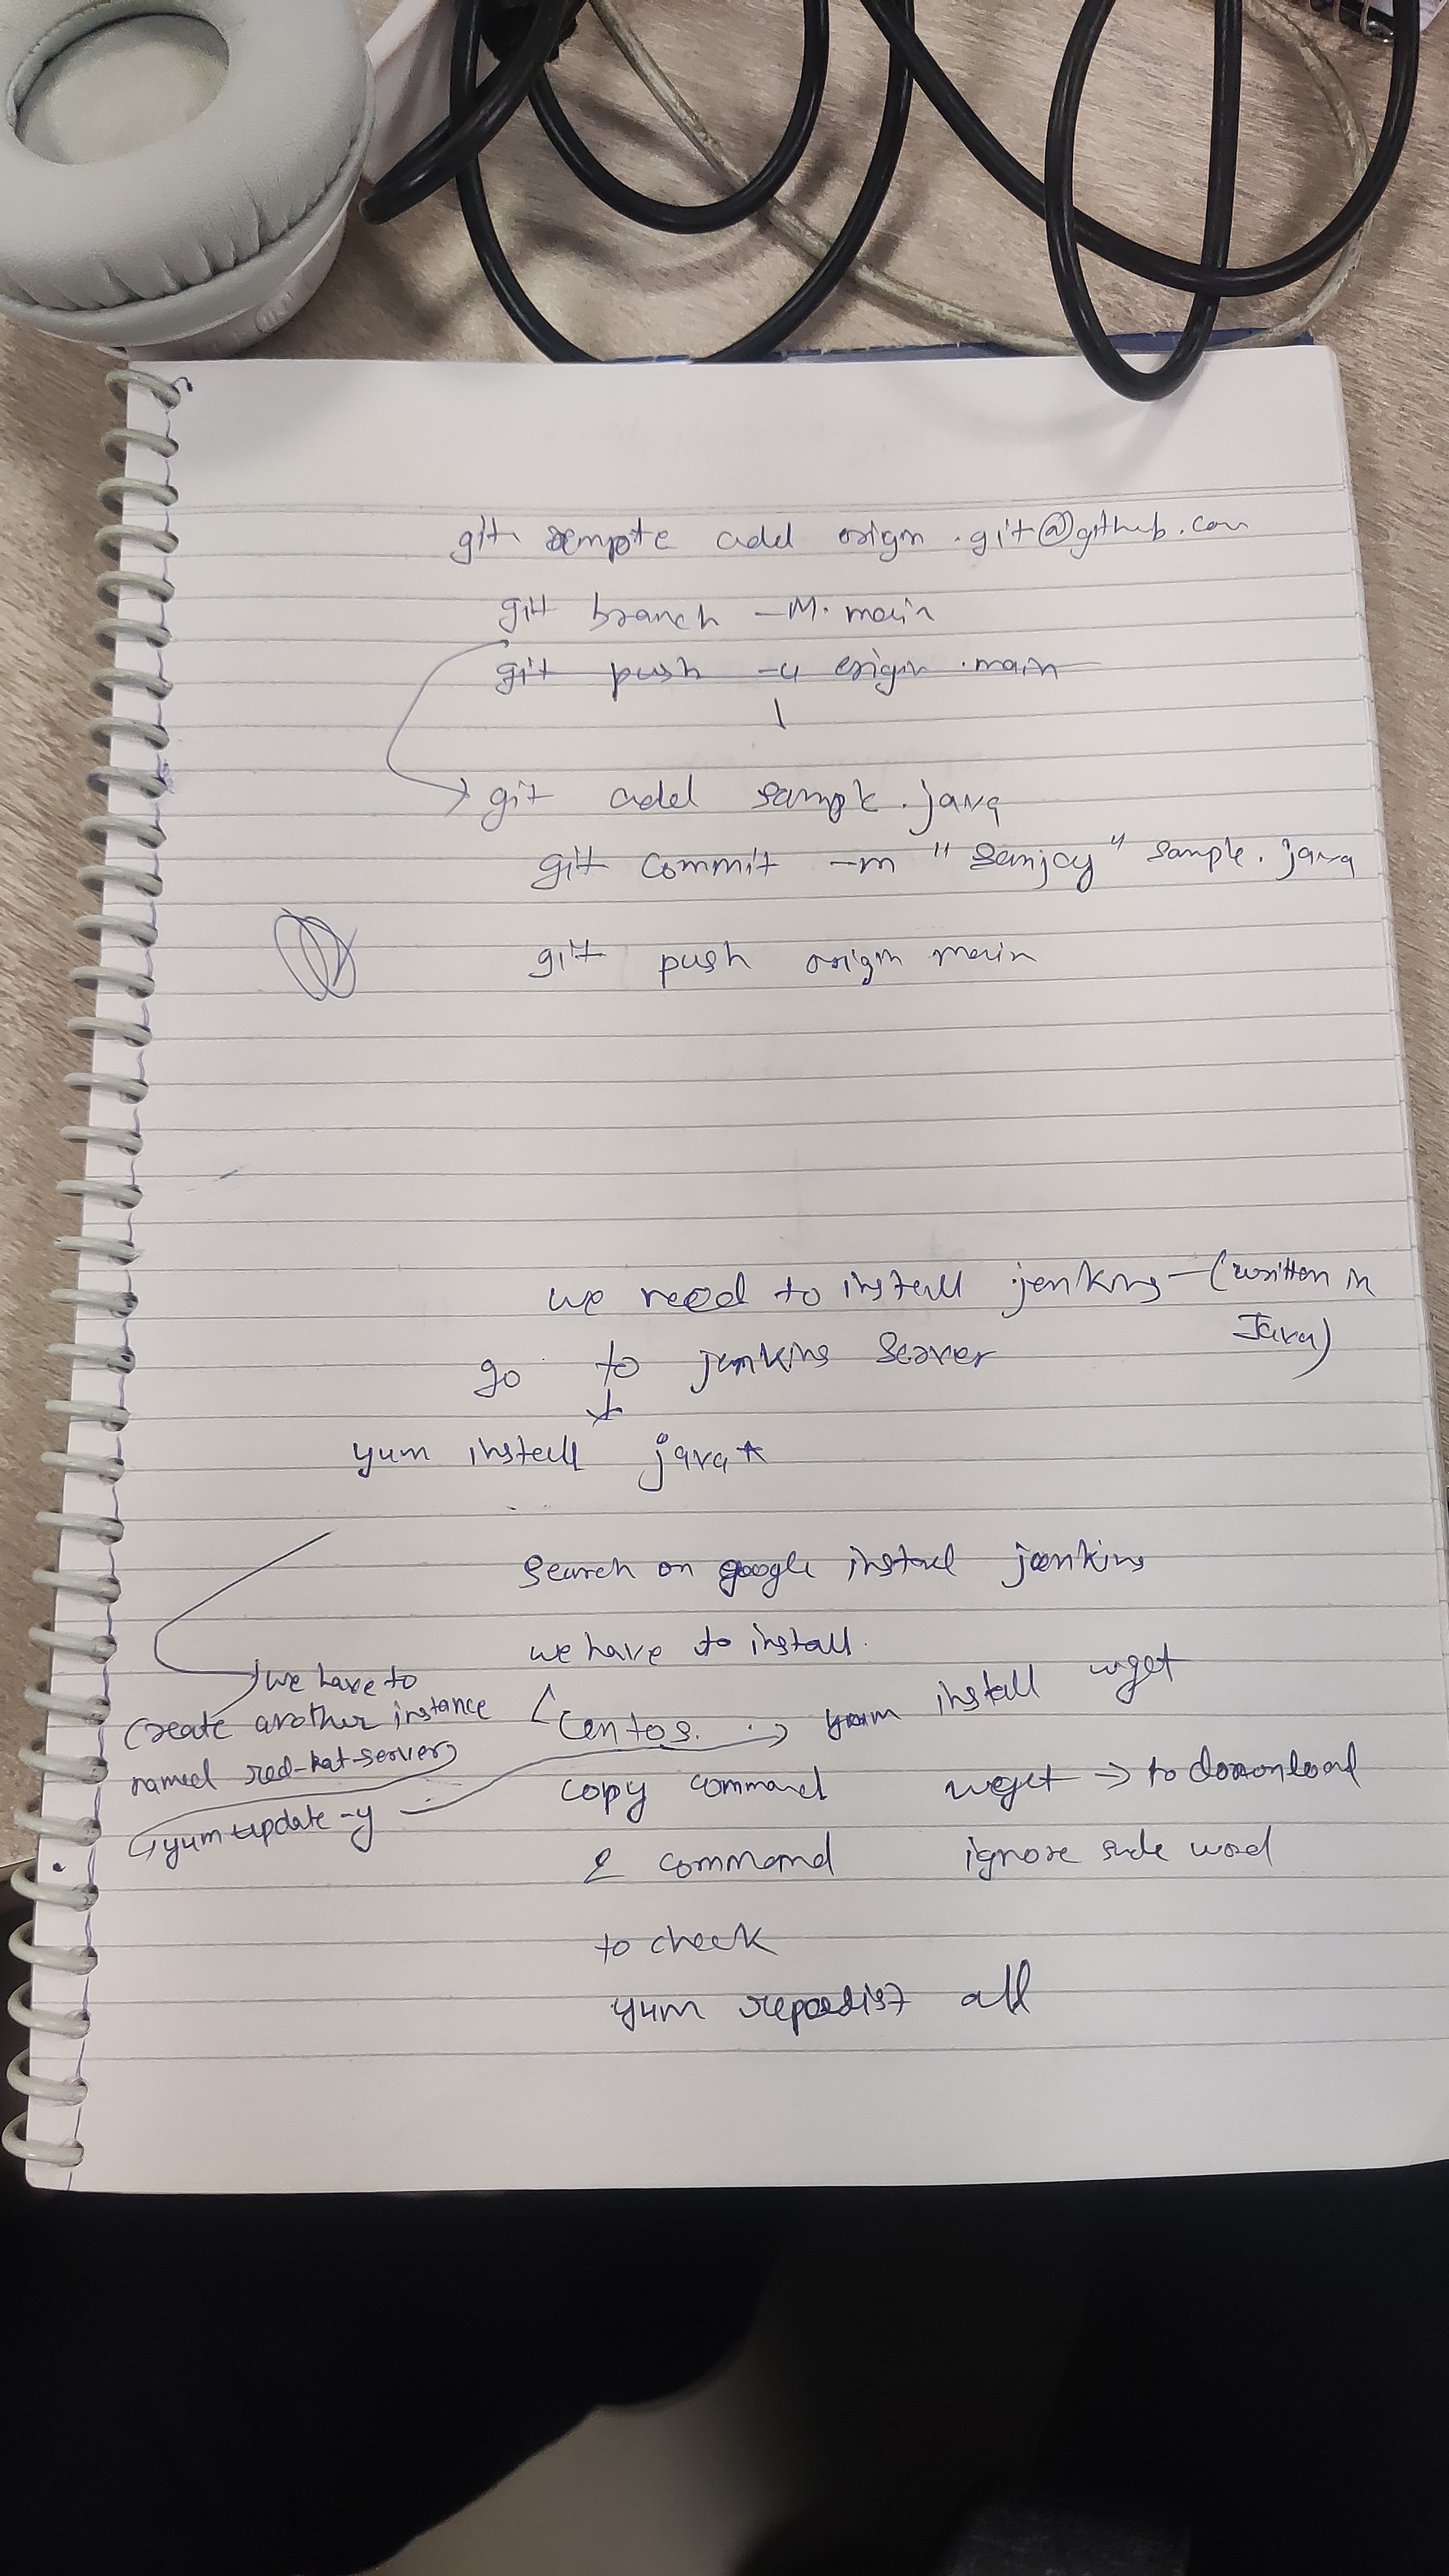 git remote add origin .git@github.com
git branch -M. main
git push -u origin .main
git add sample.java
git commit -m "Sanjay" sample.java
git push origin main
we need to install jenkins - (written in
Java)
go to jenkins server
yum install java*
search on google install jenkins
we have to install.
centos. -> yum install wget
we have to
create another instance
named red-hat-server
yum update -y
copy command wget -> to download
2 command ignore sude word
to check
yum repolist all